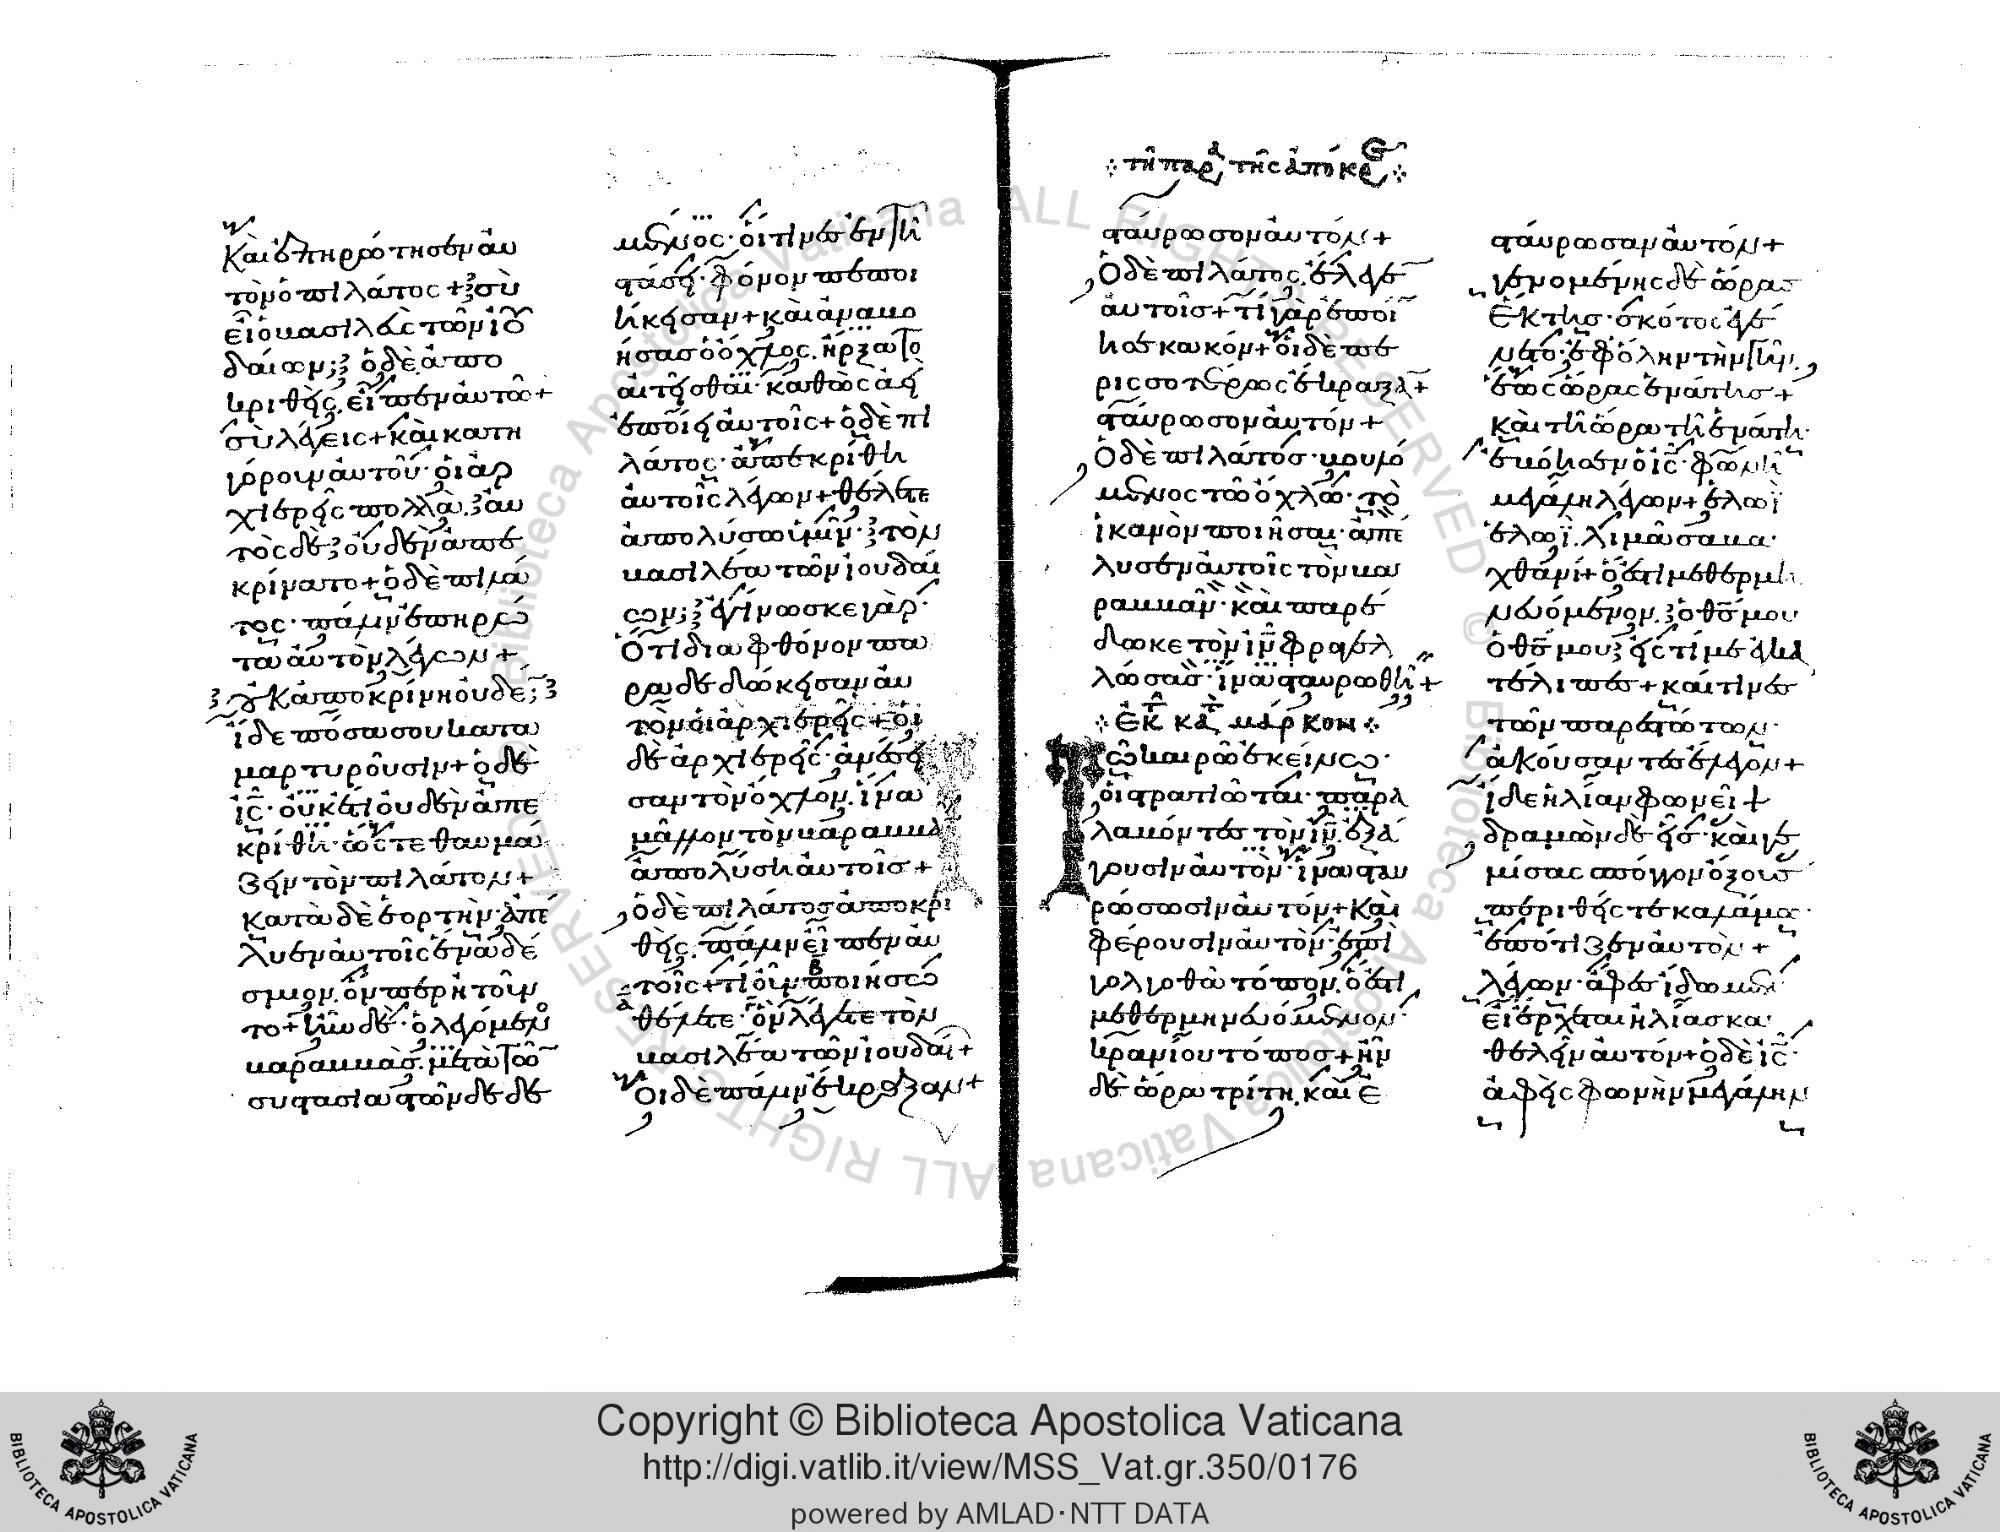 Καὶ ἐπηρώτησεν αὐ
τὸν ὁ πιλάτος + σὺ
εἶ ὁ βασιλεὺς τῶν ἰου
δαίων; ὁ δὲ ἀπο
κριθεὶς, εἶπεν αὐτῶ +
σὺ λέγεις + καὶ κατη
γόρουν αὐτοῦ· οἱ ἀρ
χιερεῖς πολλὰ. αὐ
τὸς δὲ οὐδὲν ἀπε
κρίνατο + ὁ δὲ πιλά
τος· πάλιν ἐπηρώ
τα αὐτὸν λέγων +
οὐκ ἀποκρίνη οὐδέν;
ἴδε πόσα σου κατα
μαρτυροῦσιν + ὁ δὲ
ις· οὐκέτι οὐδὲν ἀπε
κρίθη· ὥστε θαυμά
ζειν τὸν πιλάτον +
Κατὰ δὲ ἑορτὴν· ἀπέ
λυεν αὐτοῖς ἕνα δέ
σμιον. ὃν περ ἠτοῦν
το + ἦν δὲ· ὁ λεγόμενος
βαραββᾶς. μετὰ τῶν
συστασιαστῶν δεδε
μένος· οἵτινες ἐν τῆ
στάσει· φόνον πεποι
ήκεισαν + καὶ ἀναβο
ήσας ὁ ὄχλος. ἤρξατο
αἰτεῖσθαι· καθὼς ἀεὶ
ἐποίει αὐτοῖς + ὁ δὲ πι
λάτος· ἀπεκρίθη
αὐτοῖς λέγων + θέλετε
ἀπολύσω ὑμῖν· τὸν
βασιλέα τῶν ἰουδαί
ων; ἐγίνωσκε γὰρ·
Ὅτι διὰ φθόνον πα
ραδεδώκεισαν αὐ
τὸν οἱ ἀρχιερεῖς + οἱ
δὲ ἀρχιερεῖς· ἀνέσει
σαν τὸν ὄχλον. ἵνα
μᾶλλον τὸν βαραββᾶ
ἀπολύση αὐτοῖς +
Ὁ δὲ πιλάτος ἀποκρι
θεὶς. πάλιν εἶπεν αὐ
τοῖς + τί οὖν ποιήσω
θέλετε· ὃν λέγετε τὸν
βασιλέα τῶν ἰουδαί +
Οἱ δὲ πάλιν ἔκραξαν +
τῆ παρ τῆς ἀπόκρε
σταύρωσον αὐτόν +
Ὁ δὲ πιλάτος. ἔλεγεν
αὐτοῖς + τί γὰρ ἐποί
ησε κακόν + οἱ δὲ πε
ρισσοτέρως ἔκραξαν +
σταύρωσον αὐτόν +
Ὁ δὲ πιλάτος· βουλό
μενος τῶ ὄχλω· τὸ
ἱκανὸν ποιῆσαι· ἀπέ
λυσεν αὐτοῖς τὸν βα
ραββᾶν· καὶ παρέ
δωκε τὸν ιν φραγελ
λώσας· ἵνα σταυρωθῆ +
Ἐκ κατ μάρκον
Τῶ καιρῶ ἐκείνω·
οἱ στρατιῶται· παρα
λαβόντες τὸν ιν. ἐξά
γουσιν αὐτὸν· ἵνα σταυ
ρώσωσιν αὐτόν + Καὶ
φέρουσιν αὐτὸν· ἐπὶ
γολγοθὰ τόπον. ὅ ἐστι
μεθερμηνευόμενον·
κρανίου τόπος + ἦν
δὲ ὥρα τρίτη. καὶ ἐ
σταύρωσαν αὐτόν +
γενομένης δὲ ὥρας
Ἕκτης· σκότος ἐγέ
νετο· ἐφ ὅλην τὴν γῆν.
ἕως ὥρας ἐνάτης +
καὶ τῆ ὥρα τῆ ἐνάτη·
ἐβόησεν ὁ ις· φωνῆ
μεγάλη λέγων + ἐλωῒ
ἐλωῒ. λιμᾶ σαβα
χθάνι + ὅ ἐστι μεθερμη
νευόμενον. ὁ θς μου
ὁ θς μου εἰς τί με ἐγκα
τέλιπες + καί τινες
τῶν παρεστώτων·
ἀκούσαντες ἔλεγον +
ἴδε ἠλίαν φωνεῖ +
δραμὼν δὲ εἷς· καὶ γε
μίσας σπόγγον ὄξους
περιθείς τε καλάμω·
ἐπότιζεν αὐτὸν +
λέγων· ἄφες ἴδωμεν
εἰ ἔρχεται ἠλίας κα
θελεῖν αὐτόν + ὁ δὲ ις·
ἀφεὶς φωνὴν μεγάλην
BIBLIOTECA APOSTOLICA VATICANA
Copyright © Biblioteca Apostolica Vaticana
http://digi.vatlib.it/view/MSS_Vat.gr.350/0176
powered by AMLAD·NTT DATA
BIBLIOTECA APOSTOLICA VATICANA